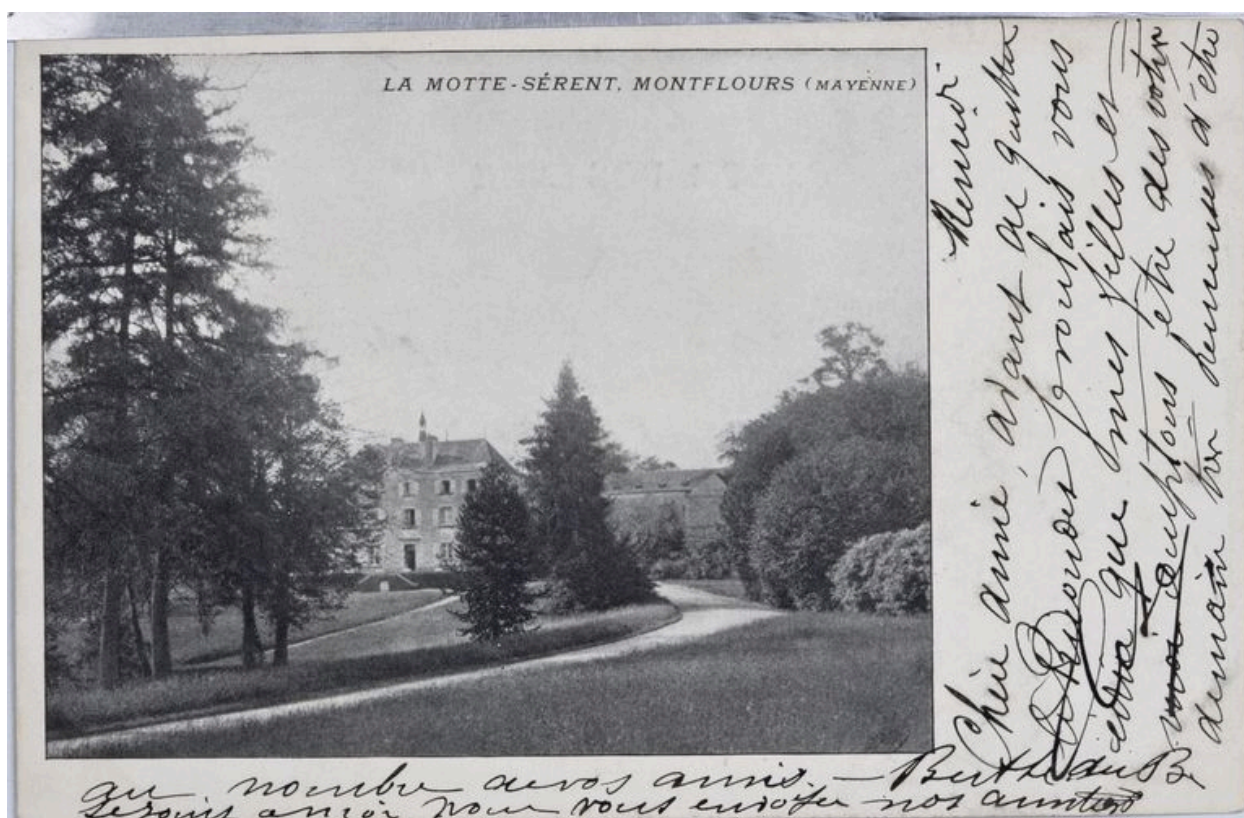 LA MOTTE-SÉRENT, MONTFLOURS (MAYENNE)
Mercredi
Chère amie, avant de quitter
je voulais vous
que mes filles et
moi comptons être des votres
demain heureuses d'être
au nombre de vos amis. — Berthe du B
pour vous envoyer nos amitiés